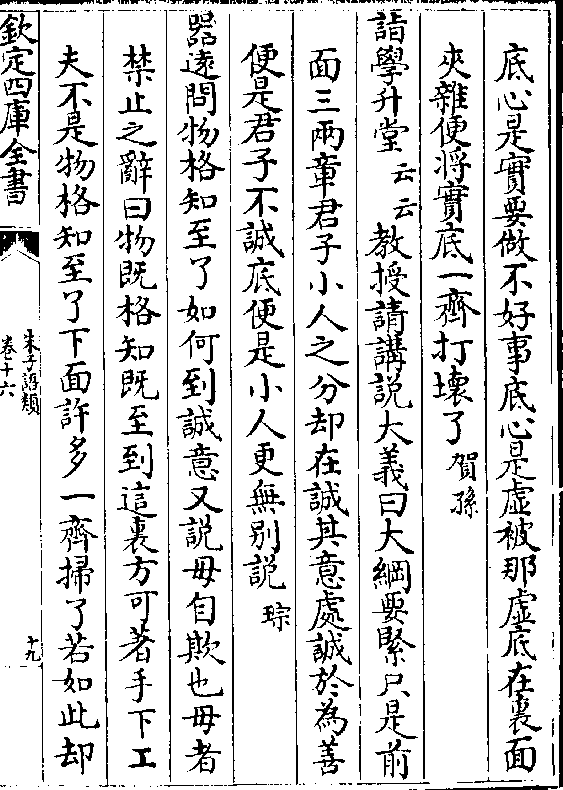 底心是實要做不好事底心是虚被那虚底在裏面
夾雜便將實底一齊打壞了賀孫
詣學升堂云云教授請講説大義曰大綱要緊只是前
面三兩章君子小人之分却在誠其意處誠於為善
便是君子不誠底便是小人更無别説琮
器遠問物格知至了如何到誠意又説毋自欺也毋者
禁止之辭曰物既格知既至到這裏方可著手下工
夫不是物格知至了下面許多一齊掃了若如此却
欽定四庫全書
朱子語類
卷十六
十九